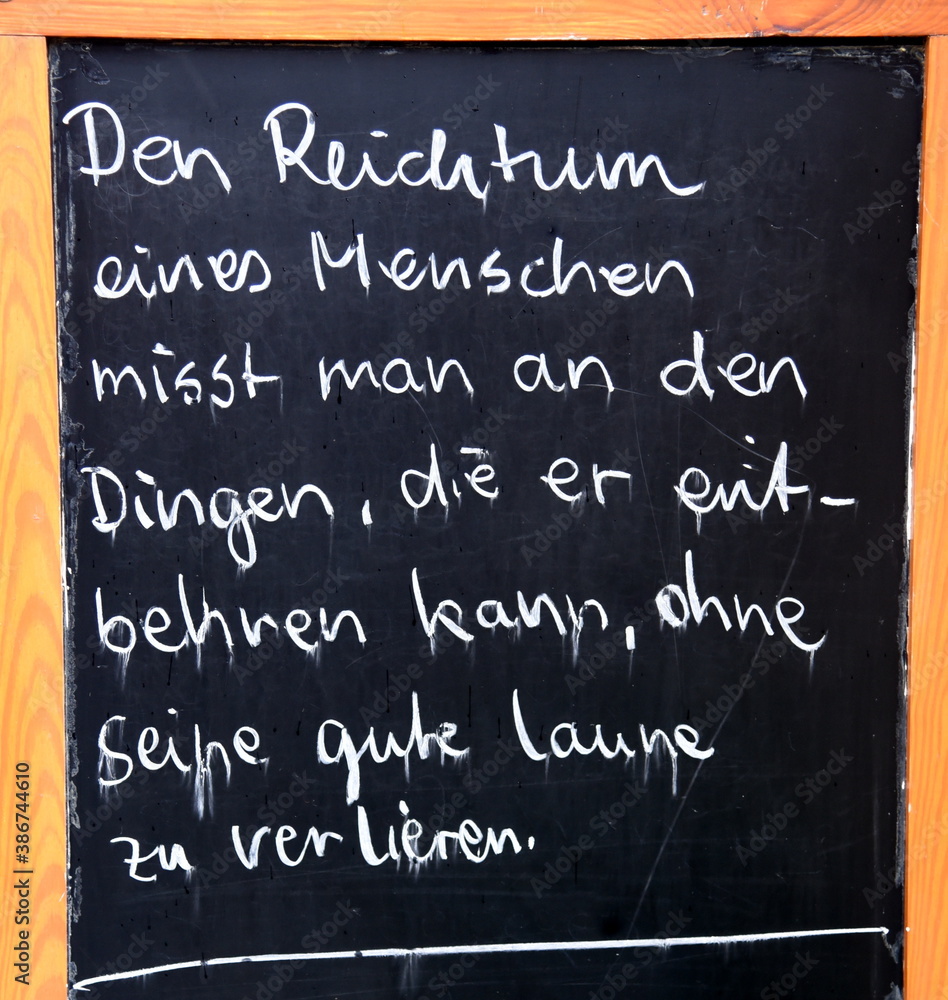 Den Reichtum
eines Menschen
misst man an den
Dingen, die er ent-
behren kann, ohne
seine gute laune
zu verlieren.
Adobe Stock | #386744610